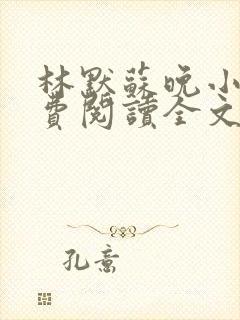 林默蘇晚小
費閱讀全文
孔意